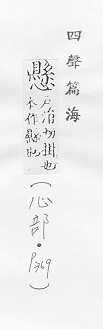 四聲篇海
懸戶涓切掛也
本作縣也
(心部•P369)